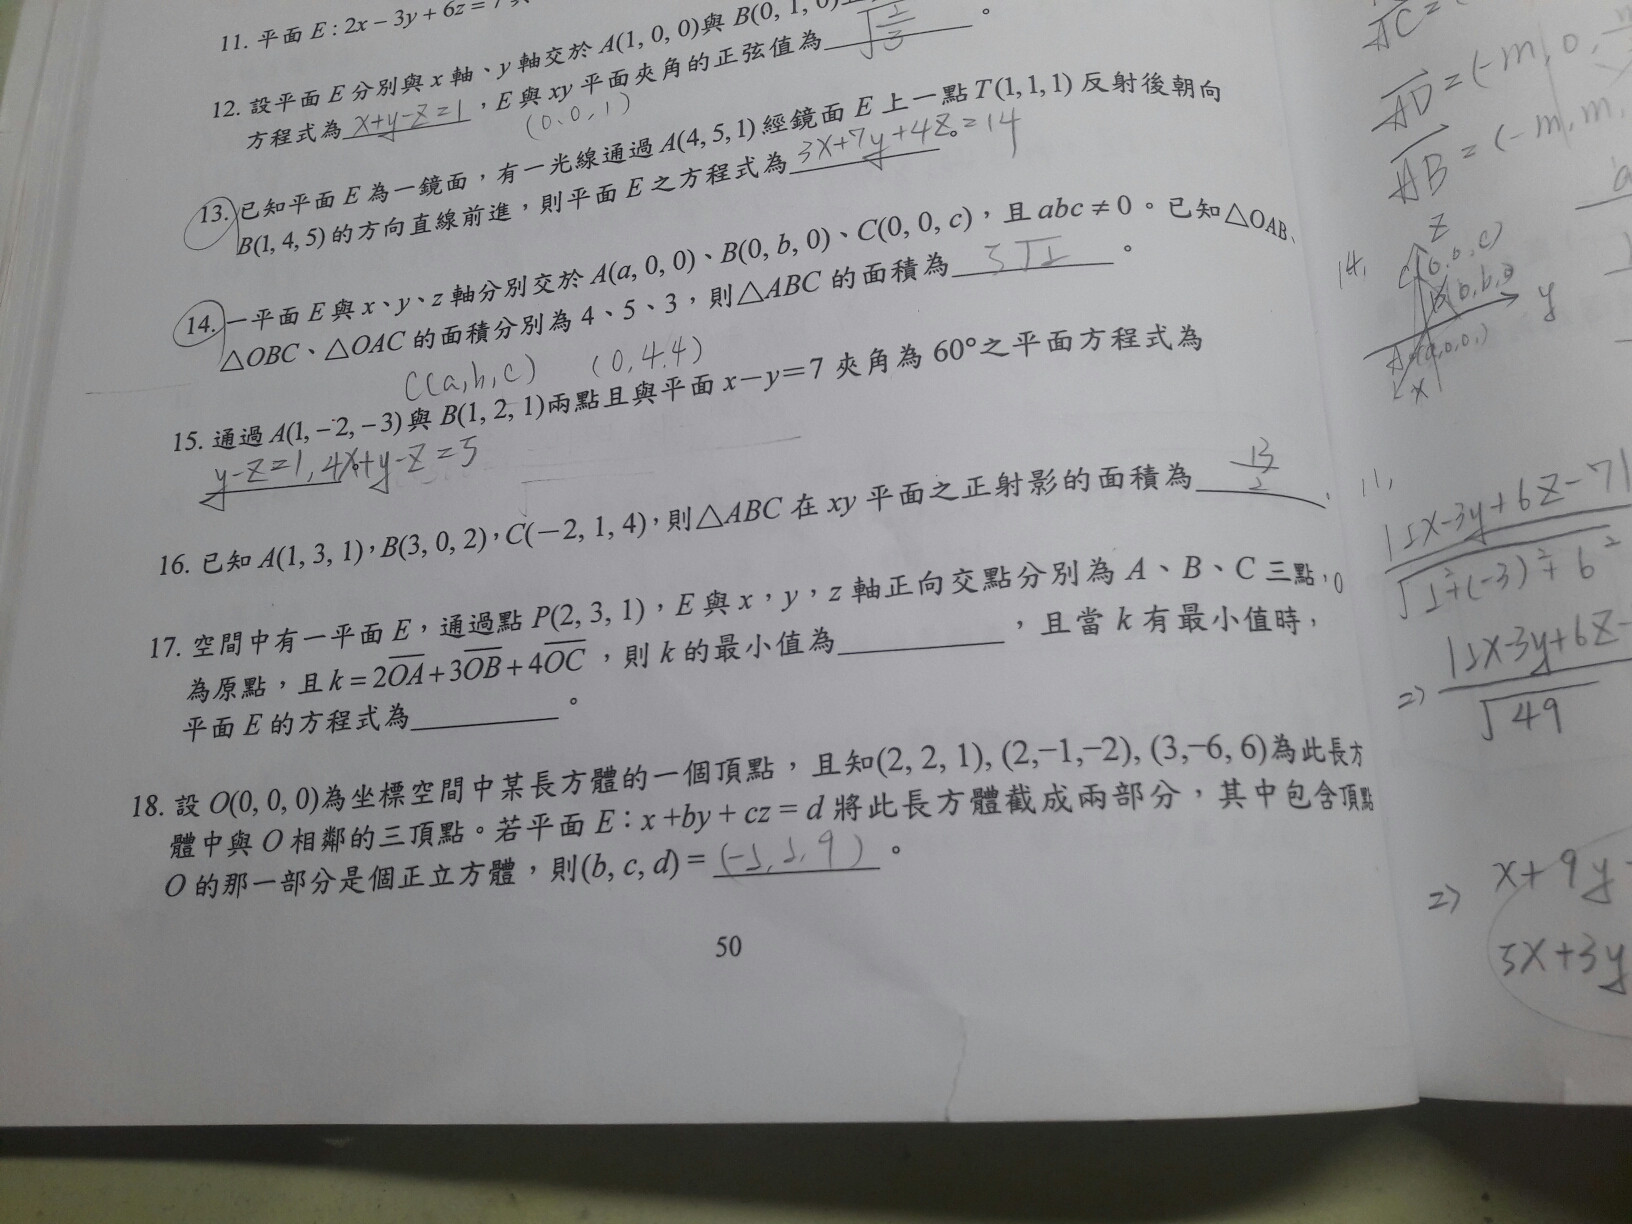 11. 平面 E : 2x − 3y + 6z = 7
12. 設平面 E 分別與 x 軸、y 軸交於 A(1, 0, 0)與 B(0, 1, 0)
方程式為 x+y-z=1 ,E 與 xy 平面夾角的正弦值為
(0、0,1)
13. 已知平面 E 為一鏡面,有一光線通過 A(4, 5, 1) 經鏡面 E 上一點 T(1, 1, 1) 反射後朝向
B(1, 4, 5) 的方向直線前進,則平面 E 之方程式為 3x+7y+4z=14 。
14. 一平面 E 與 x、y、z 軸分別交於 A(a, 0, 0)、B(0, b, 0)、C(0, 0, c),且 abc ≠ 0。已知△OAB、
△OBC、△OAC 的面積分別為 4、5、3,則△ABC 的面積為 5√2 。
C(a,b,c) (0,4.4)
15. 通過 A(1, −2, −3)與 B(1, 2, 1)兩點且與平面 x − y = 7 夾角為 60°之平面方程式為
y-z=1, 4x+y-z=5
16. 已知 A(1, 3, 1),B(3, 0, 2),C(−2, 1, 4),則△ABC 在 xy 平面之正射影的面積為 13/2
17. 空間中有一平面 E,通過點 P(2, 3, 1),E 與 x,y,z 軸正向交點分別為 A、B、C 三點,O
為原點,且 k = 2OA + 3OB + 4OC,則 k 的最小值為 ,且當 k 有最小值時,
平面 E 的方程式為 。
18. 設 O(0, 0, 0)為坐標空間中某長方體的一個頂點,且知(2, 2, 1), (2,−1,−2), (3,−6, 6)為此長方
體中與 O 相鄰的三頂點。若平面 E:x + by + cz = d 將此長方體截成兩部分,其中包含頂點
O 的那一部分是個正立方體,則(b, c, d) = (-2,2,9) 。
50
AC=
AD=(-m,0,
AB=(-m,m,
14,
z
C(0,0,c)
B(0,b,0)
y
A(a,0,0,)
x
11,
|2x-3y+6z-7|
√2²+(-3)²+6²
=> |2x-3y+6z-
√49
=> x+9y
5x+3y